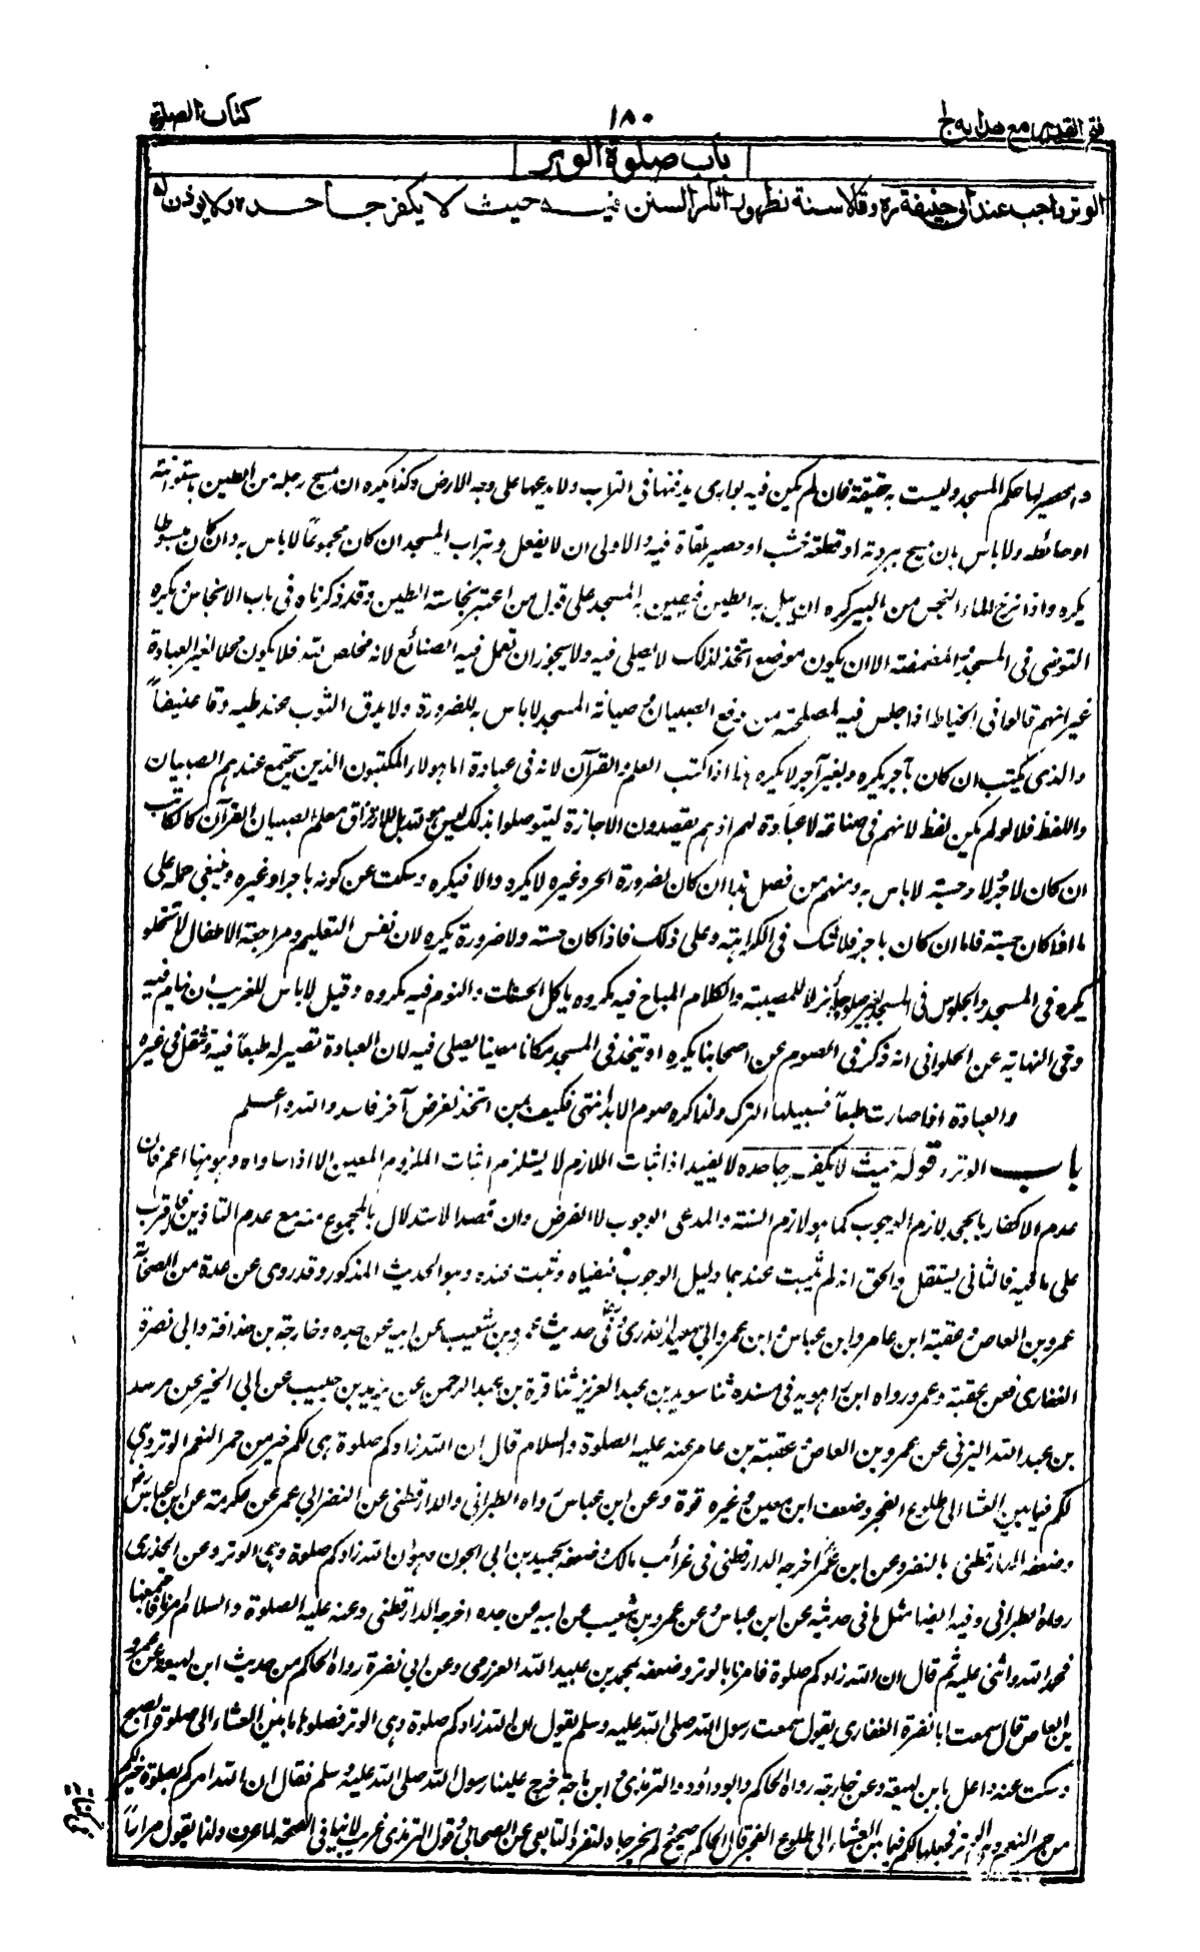 فتح القدير مع هدايه ج ١
١٨٠
كتاب الصلوة
باب صلوة الوتر
الوتر واجب عند ابى حنيفة رح وقالا سنة لظهور اثار السنن فيه حيث لا يكفر جاحده ولا يوذن له
والحصير لها حكم المسجد وليست به حقيقة فان لم يكن فيه بوارى يدفنها فى التراب ولا يدعها على وجه الارض وكذا يكره ان يمسح رجله من الطين باسطوانته
او حائطه ولا باس بان يمسح ببردته او قطعة خشب او حصير ملقاة فيه والاولى ان لا يفعل وبتراب المسجد ان كان مجموعا لا باس به وان كان مبسوطا
يكره واذا نزح الماء النجس من البير كره ان يبل به الطين فيطين به المسجد على قول من اعتبر نجاسة الطين وقد ذكرناه فى باب الانجاس ويكره
التوضى فى المسجد والمضمضة الا ان يكون موضع اتخذ لذلك لا يصلى فيه ولا يجوز ان تعمل فيه الصنائع لانه مخلص لله فلا يكون محلا لغير العبادة
غير انهم قالوا فى الخياط اذا جلس فيه لمصلحته من دفع الصبيان وصيانة المسجد لا باس به للضرورة ولا يدق الثوب عند طيه دقا عنيفاً
والذى يكتب ان كان باجر يكره وبغير اجر لا يكره هذا اذا كتب العلم والقرآن لانه فى عبادة اما هولاء المكتبون الذين يجتمع عندهم الصبيان
واللغط فلا ولو لم يكن لغط لانهم فى صناعة لا عبادة لهم اذ هم يقصدون الاجازة ليتوصلوا بذلك ليس هو لله بل للارتزاق ومعلم الصبيان القرآن كالكاتب
ان كان لاجر لا وحسبة لا باس به ومنهم من فصل هذا ان كان لضرورة الحر وغيره لا يكره والا فيكره وسكت عن كونه باجر او غيره وينبغى حمله على
ما اذا كان حسبة فاما ان كان باجر فلا شك فى الكراهة وعلى ذلك فاذا كان حسبة ولا ضرورة يكره لان نفس التعليم ومراجعة الاطفال لا تخلو
يكره فى المسجد والجلوس فى المسجد بغير صلوة جائز لا للمصيبة والكلام المباح فيه مكروه ياكل الحسنات والنوم فيه مكروه وقيل لا باس للغريب ان ينام فيه
وفى النهاية عن الحلوانى انه ذكر فى الصوم عن اصحابنا يكره ان يتخذ فى المسجد مكانا معينا يصلى فيه لان العبادة تصير له طبعاً فيه وتثقل فى غيره
والعبادة اذا صارت طبعاً فسبيلها الترك ولذا كره صوم الابد انتهى فكيف بمن اتخذ لغرض آخر فاسد والله اعلم
باب الوتر قوله حيث لا يكفر جاحده لا يفيد اذا ثبات اللازم لا يستلزم اثبات الملزوم المعين الا اذا ساواه وهو منها اعم فان
عدم الاكفار بالجحد لازم الوجوب كما هو لازم السنة والمدعى الوجوب لا الفرض وان قصد الاستدلال بالمجموع منه مع عدم التاذين قرب
على ما فيه فالثانى يستقل والحق انه لم يثبت عندهما دليل الوجوب فنفياه وثبت عنده وهو الحديث المذكور وقد روى عن عدة من الصحابة
عمرو بن العاص وعقبة ابن عامر وابن عباس وابن عمر وابى سعيد الخدرى وفى حديث عمرو بن شعيب عن ابيه عن جده وخارجة بن حذافة وابى نصرة
الغفارى فعن عقبة وعمرو رواه ابن راهويه فى مسنده ثنا سويد بن عبد العزيز ثنا قرة بن عبد الرحمن عن يزيد بن حبيب عن ابى الخير عن مرسد
بن عبد الله اليزنى عن عمرو بن العاص وعقبة بن عامر عنه عليه الصلوة والسلام قال ان الله زادكم صلوة هى لكم خير من حمر النعم الوتر وهى
لكم فيما بين العشاء الى طلوع الفجر وضعف ابن معين وغيره قرة وعن ابن عباس رواه الطبرانى والدارقطنى عن النضر ابى عمر عن عكرمة عن ابن عباس
وضعفه الدارقطنى بالنضر وعن ابن عمر اخرجه الدارقطنى فى غرائب مالك وضعفه بحميد بن ابى الجون وهو ان الله زادكم صلوة وهى الوتر وعن الخدرى
رواه الطبرانى وفيه ايضا مثل ما فى حديثه عن ابن عباس وعن عمرو بن شعيب عن ابيه عن جده اخرجه الدارقطنى وعنه عليه الصلوة والسلام امرنا فاجتمعنا
فحمد الله واثنى عليه ثم قال ان الله زادكم صلوة فامرنا بالوتر وضعفه بمحمد بن عبيد الله العرزمى وعن ابى نضرة رواه الحاكم من حديث ابن لهيعة عن عمرو
بن العاص قال سمعت ابا نضرة الغفارى يقول سمعت رسول الله صلى الله عليه وسلم يقول ان الله زادكم صلوة وهى الوتر فصلوها ما بين العشاء الى صلوة الصبح
وسكت عنه واعل بابن لهيعة وعن خارجة رواه الحاكم وابو داؤد والترمذى وابن ماجة خرج علينا رسول الله صلى الله عليه وسلم فقال ان الله امركم بصلوة خير لكم
من حمر النعم وهى الوتر فجعلها لكم فيما بين العشاء الى طلوع الفجر قال الحاكم صحيح ولم يخرجاه لتفرد التابعى عن الصحابى وقول الترمذى غريب لا ينافى الصحة لما عرف ولذا يقول مراراً